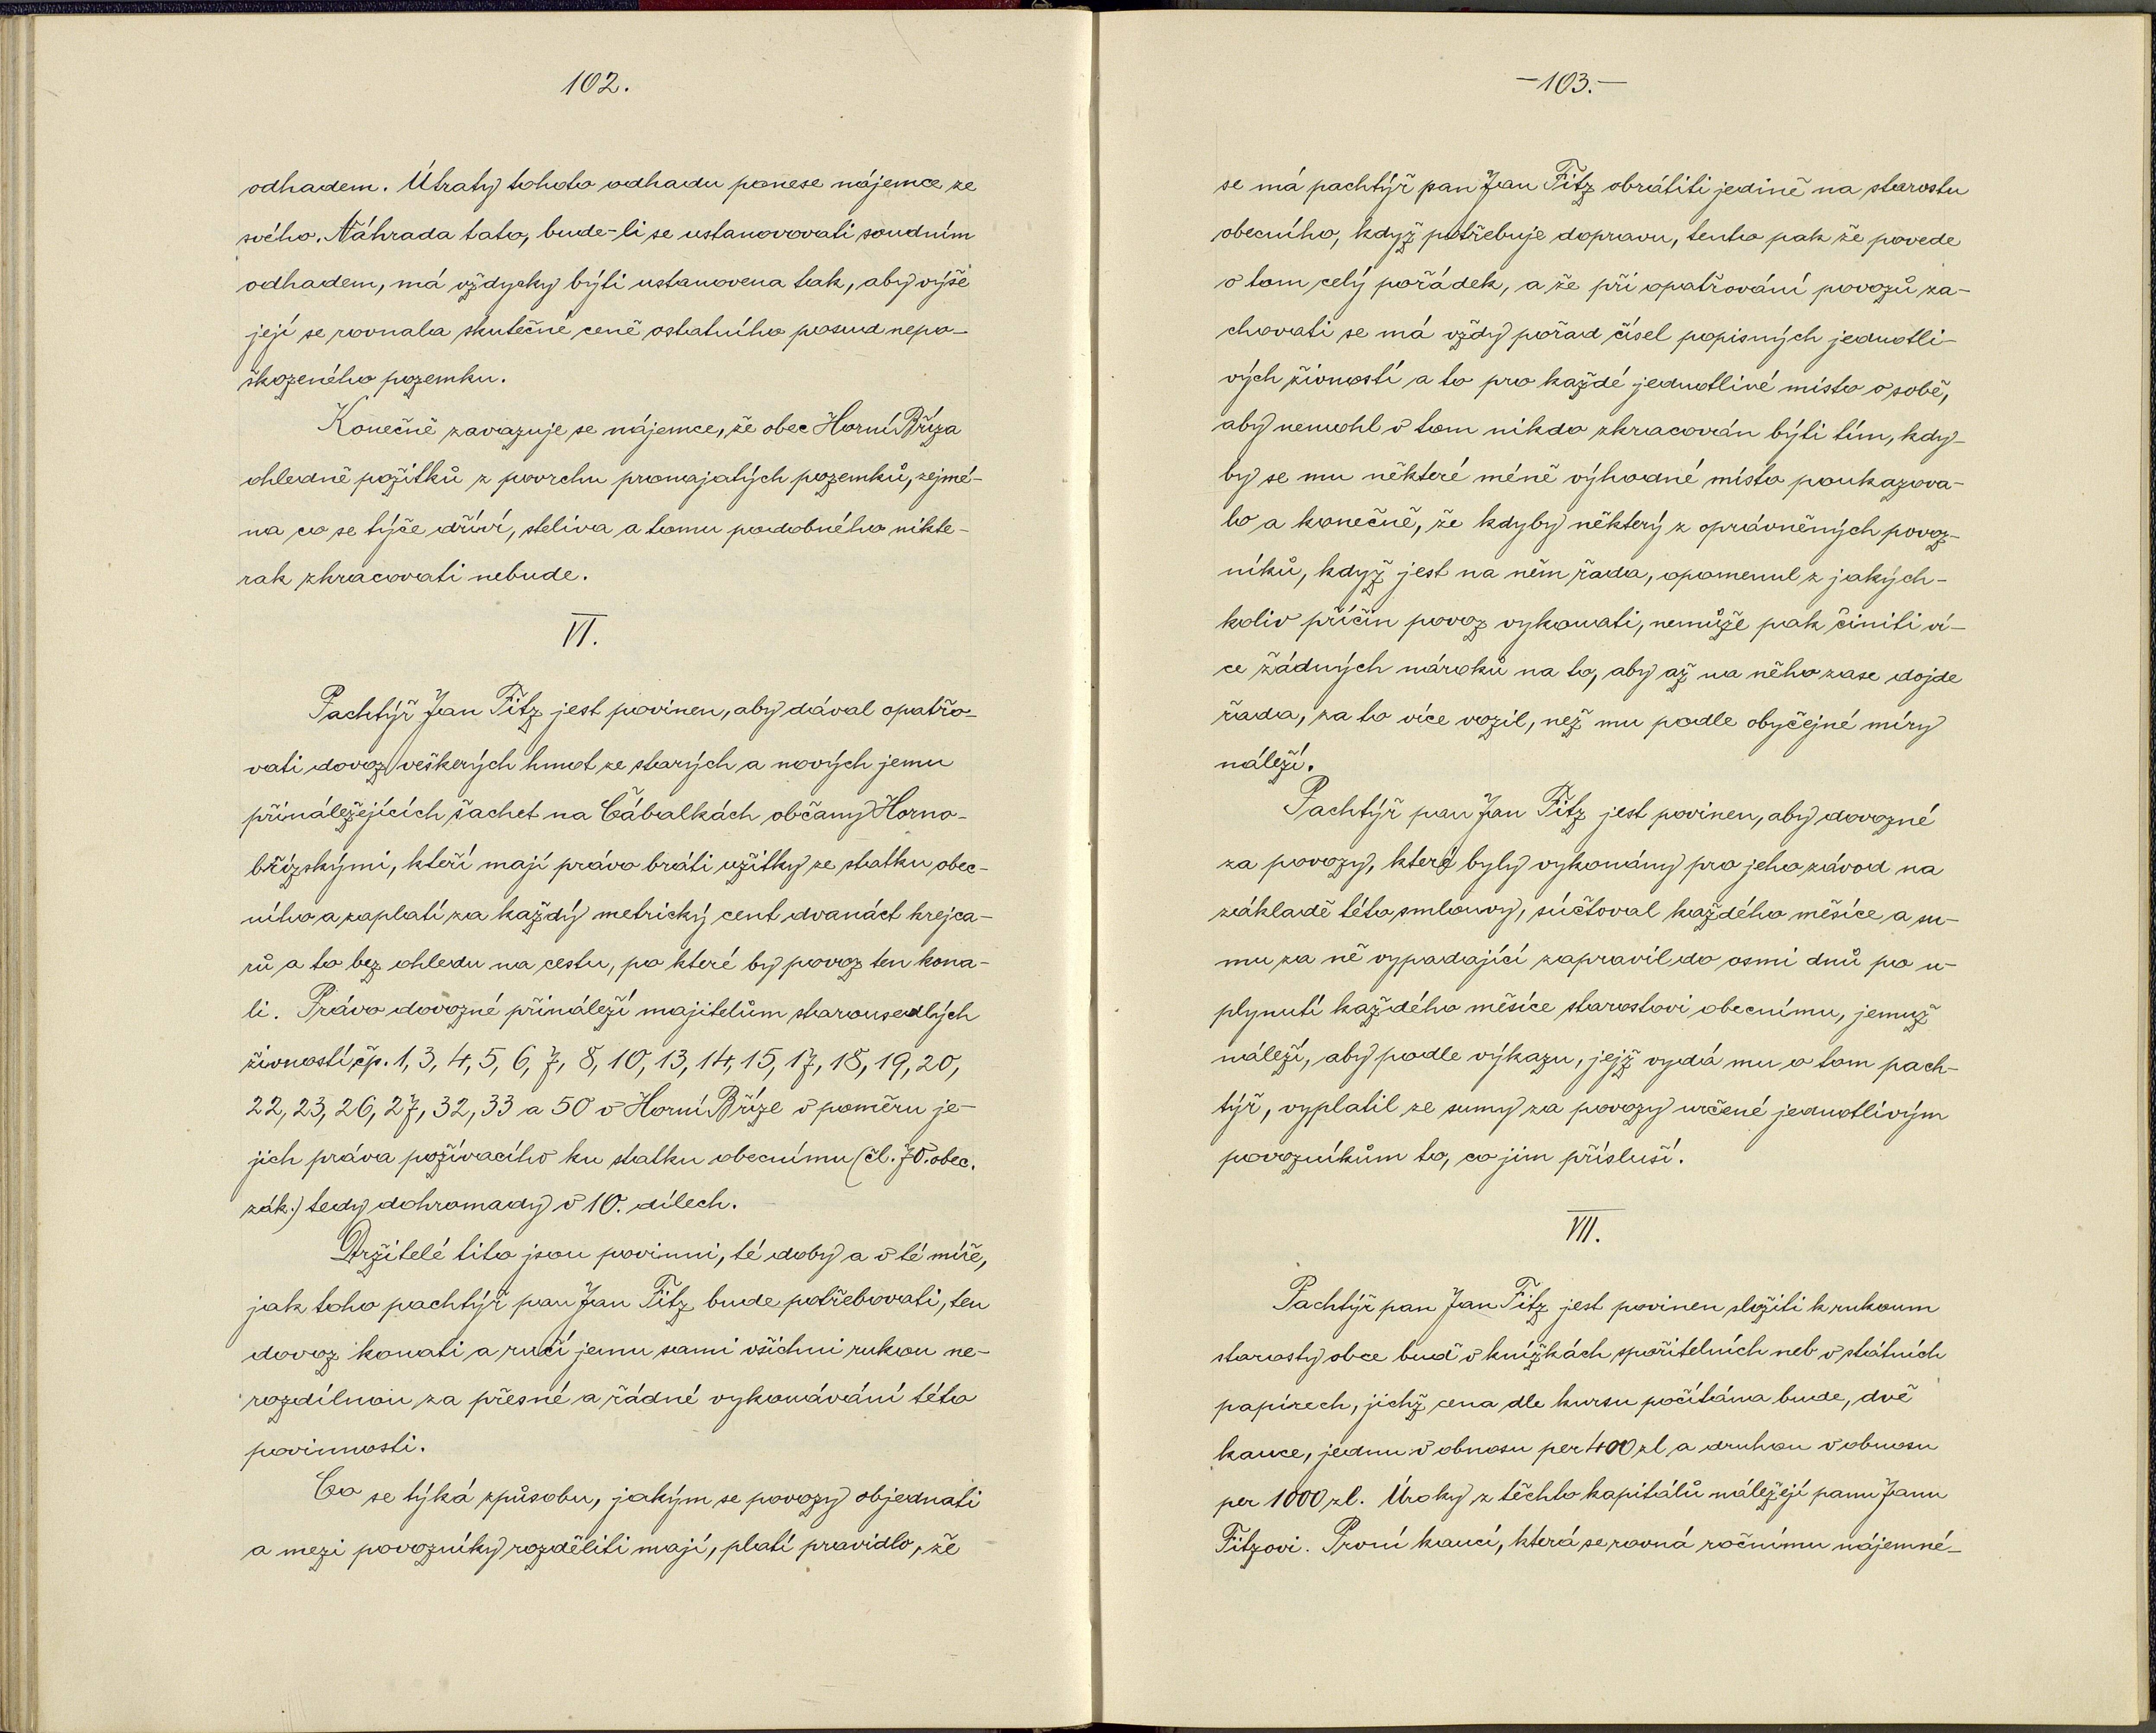 102.
odhadem. Útraty tohoto odhadu ponese nájemce ze
svého. Náhrada tato, bude-li se ustanovovati soudním
odhadem, má vždycky býti ustanovena tak, aby výše
její se rovnala skutečné ceně ostatního posud nepo-
škozeného pozemku.
Konečně zavazuje se nájemce, že obec Horní Bříza
ohledně požitků z povrchu pronajatých pozemků, zejmé-
na co se týče dříví, steliva a tomu podobného nikte-
rak zkracovati nebude.
VI.
Pachtýř Jan Fitz jest povinen, aby dával opatřo-
vati dovoz veškerých hmot ze starých a nových jemu
přináležejících šachet na Čábalkách občany Horno-
břízskými, kteří mají právo bráti užitky ze statku obec-
ního a zaplatí za každý metrický cent dvanáct krejca-
rů a to bez ohledu na cestu, po které by povoz ten kona-
li. Právo dovozné přináleží majitelům starousedlých
živností čp. 1, 3, 4, 5, 6, 7, 8, 10, 13, 14, 15, 17, 18, 19, 20,
22, 23, 26, 27, 32, 33 a 50 v Horní Bříze v poměru je-
jich práva požívacího ku statku obecnímu (čl. 70. obec.
zák.) tedy dohromady v 10. dílech.
Držitelé tito jsou povinni, té doby a v té míře,
jak toho pachtýř pan Jan Fitz bude potřebovati, ten
dovoz konati a ručí jemu sami všichni rukou ne-
rozdílnou za přesné a řádné vykonávání této
povinnosti.
Co se týká způsobu, jakým se povozy objednati
a mezi povozníky rozděliti mají, platí pravidlo, že
-103.-
se má pachtýř pan Jan Fitz obrátiti jedině na starostu
obecního, když potřebuje dopravu, tento pak že povede
v tom celý pořádek, a že při opatřování povozů za-
chovati se má vždy pořad čísel popisných jednotli-
vých živností a to pro každé jednotlivé místo o sobě,
aby nemohl v tom nikdo zkracován býti tím, kdy-
by se mu některé méně výhodné místo poukazova-
lo a konečně, že kdyby některý z oprávněných povoz-
níků, když jest na něm řada, opomenul z jakých-
koliv příčin povoz vykonati, nemůže pak činiti ví-
ce žádných nároků na to, aby až na něho zase dojde
řada, za to více vozil, než mu podle obyčejné míry
náleží.
Pachtýř pan Jan Fitz jest povinen, aby dovozné
za povozy, které byly vykonány pro jeho závod na
základě této smlouvy, súčtoval každého měsíce a su-
mu za ně vypadající zapravil do osmi dnů po u-
plynutí každého měsíce starostovi obecnímu, jemuž
náleží, aby podle výkazu, jejž vydá mu o tom pach-
týř, vyplatil ze sumy za povozy určené jednotlivým
povozníkům to, co jim přísluší.
VII.
Pachtýř pan Jan Fitz jest povinen složiti k rukoum
starosty obce buď v knížkách spořitelních neb v státních
papírech, jichž cena dle kursu počítána bude, dvě
kauce, jednu v obnosu per 400 zl a druhou v obnosu
per 1000 zl. Úroky z těchto kapitálů náležejí panu Janu
Fitzovi. První kaucí, která se rovná ročnímu nájemné-